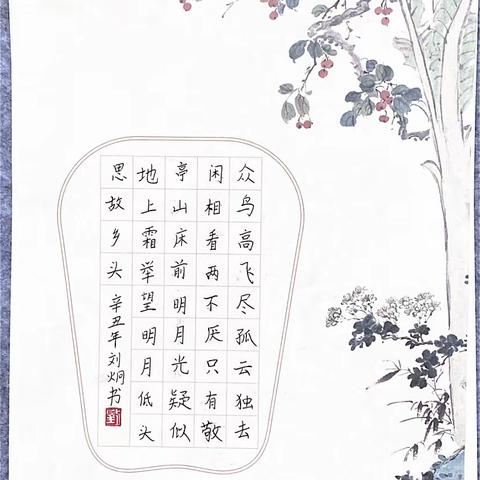 众鸟高飞尽孤云独去
闲相看两不厌只有敬
亭山床前明月光疑似
地上霜举望明月低头
思故乡头
辛丑年刘炯书
劉